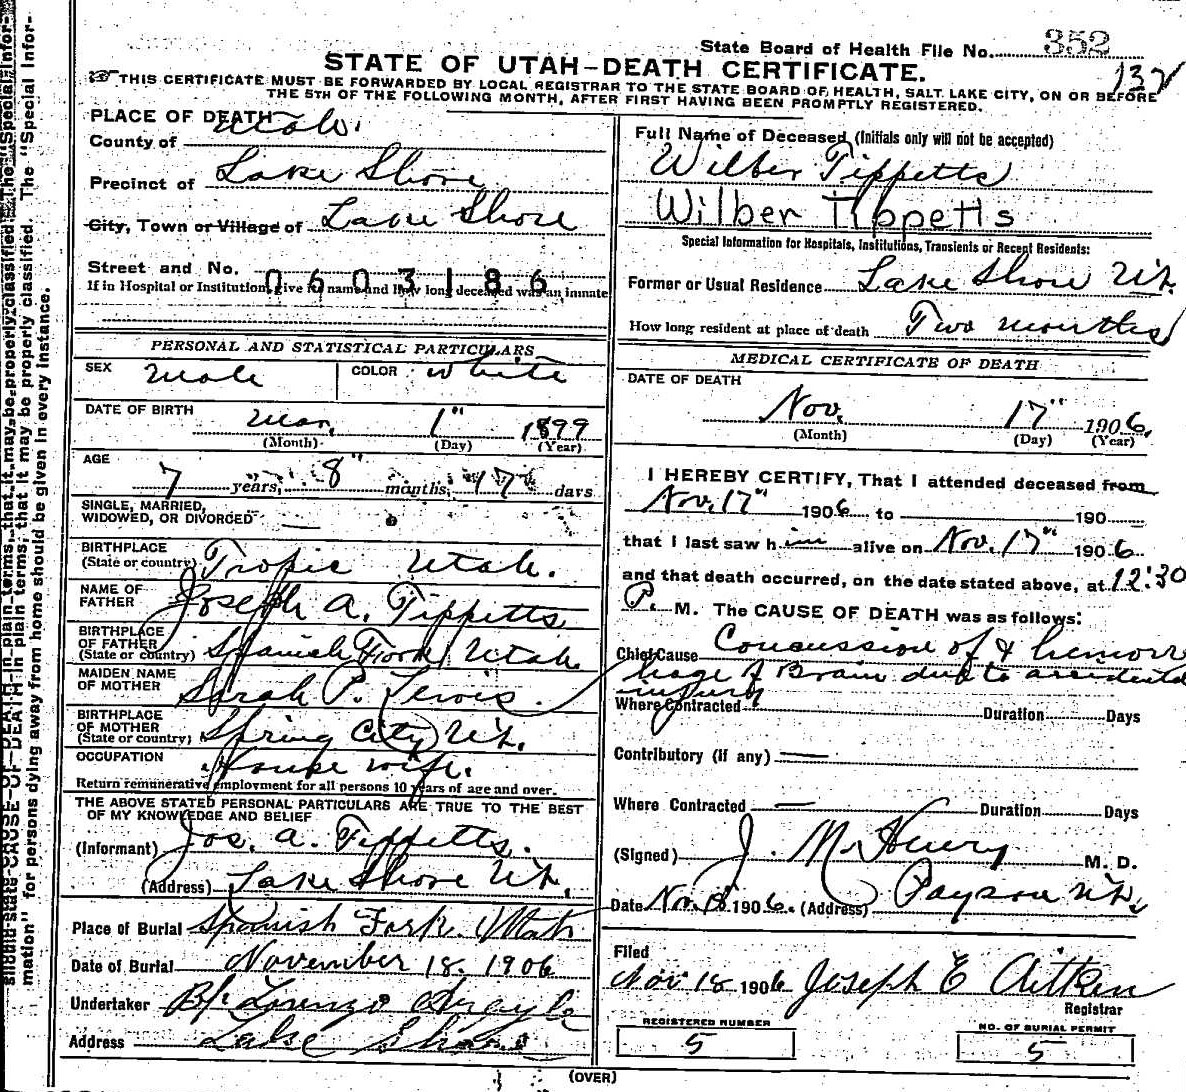 State Board of Health File No. 352
132
STATE OF UTAH—DEATH CERTIFICATE.
☞ THIS CERTIFICATE MUST BE FORWARDED BY LOCAL REGISTRAR TO THE STATE BOARD OF HEALTH, SALT LAKE CITY, ON OR BEFORE
THE 5TH OF THE FOLLOWING MONTH, AFTER FIRST HAVING BEEN PROMPTLY REGISTERED.
PLACE OF DEATH
County of Utah.
Precinct of Lake Shore
City, Town or Village of Lake Shore
Street and No. 0603186
If in Hospital or Institution, give its name and how long deceased was an inmate
PERSONAL AND STATISTICAL PARTICULARS
SEX Male COLOR White
DATE OF BIRTH Mar. 1" 1899
(Month) (Day) (Year)
AGE 7 years, 8" months, 17 days
SINGLE, MARRIED,
WIDOWED, OR DIVORCED —
BIRTHPLACE
(State or country) Tropic Utah.
NAME OF
FATHER Joseph A. Tippetts
BIRTHPLACE
OF FATHER
(State or country) Spanish Fork Utah
MAIDEN NAME
OF MOTHER Sarah P. Lewis
BIRTHPLACE
OF MOTHER
(State or country) Spring City Ut.
OCCUPATION House wife.
Return remunerative employment for all persons 10 years of age and over.
THE ABOVE STATED PERSONAL PARTICULARS ARE TRUE TO THE BEST
OF MY KNOWLEDGE AND BELIEF
(Informant) Jos. A. Tippetts.
(Address) Lake Shore Ut.
Place of Burial Spanish Fork Utah
Date of Burial November 18, 1906
Undertaker Lorenzo
Address Lake Shore
Full Name of Deceased (Initials only will not be accepted)
Wilber Tippetts
Wilber Tippetts
Special Information for Hospitals, Institutions, Transients or Recent Residents:
Former or Usual Residence Lake Shore Ut.
How long resident at place of death Two months
MEDICAL CERTIFICATE OF DEATH
DATE OF DEATH
Nov. 17" 1906.
(Month) (Day) (Year)
I HEREBY CERTIFY, That I attended deceased from
Nov. 17" 1906 to 190
that I last saw him alive on Nov. 17" 1906.
and that death occurred, on the date stated above, at 12:30
P. M. The CAUSE OF DEATH was as follows:
Chief Cause Concussion of & hemorr
hage of Brain due to accidental
injury
Where Contracted Duration Days
Contributory (if any) —
Where Contracted — Duration Days
(Signed) J. M. Henry M. D.
Date Nov. 18 1906. (Address) Payson Ut.
Filed
Nov 18 1906 Joseph E Aitken
Registrar
REGISTERED NUMBER
5
NO. OF BURIAL PERMIT
5
(OVER)
should state CAUSE OF DEATH in plain terms, that it may be properly classified. The "Special Infor-
mation" for persons dying away from home should be given in every instance.